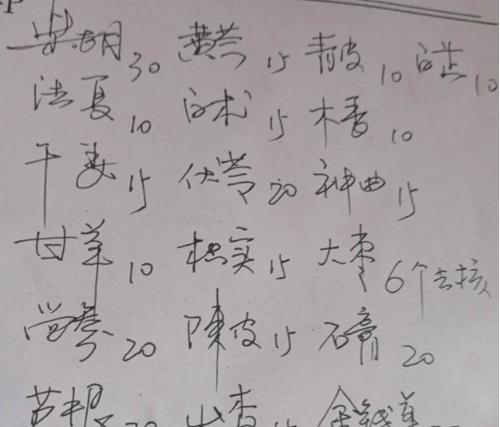 柴胡30 黄芩15 青皮10 白芷10
法夏10 白术15 木香10
干姜15 伏苓20 神曲15
甘草10 枳实15 大枣6个去核
党参20 陳皮15 石膏20
芦根 山查 金钱草